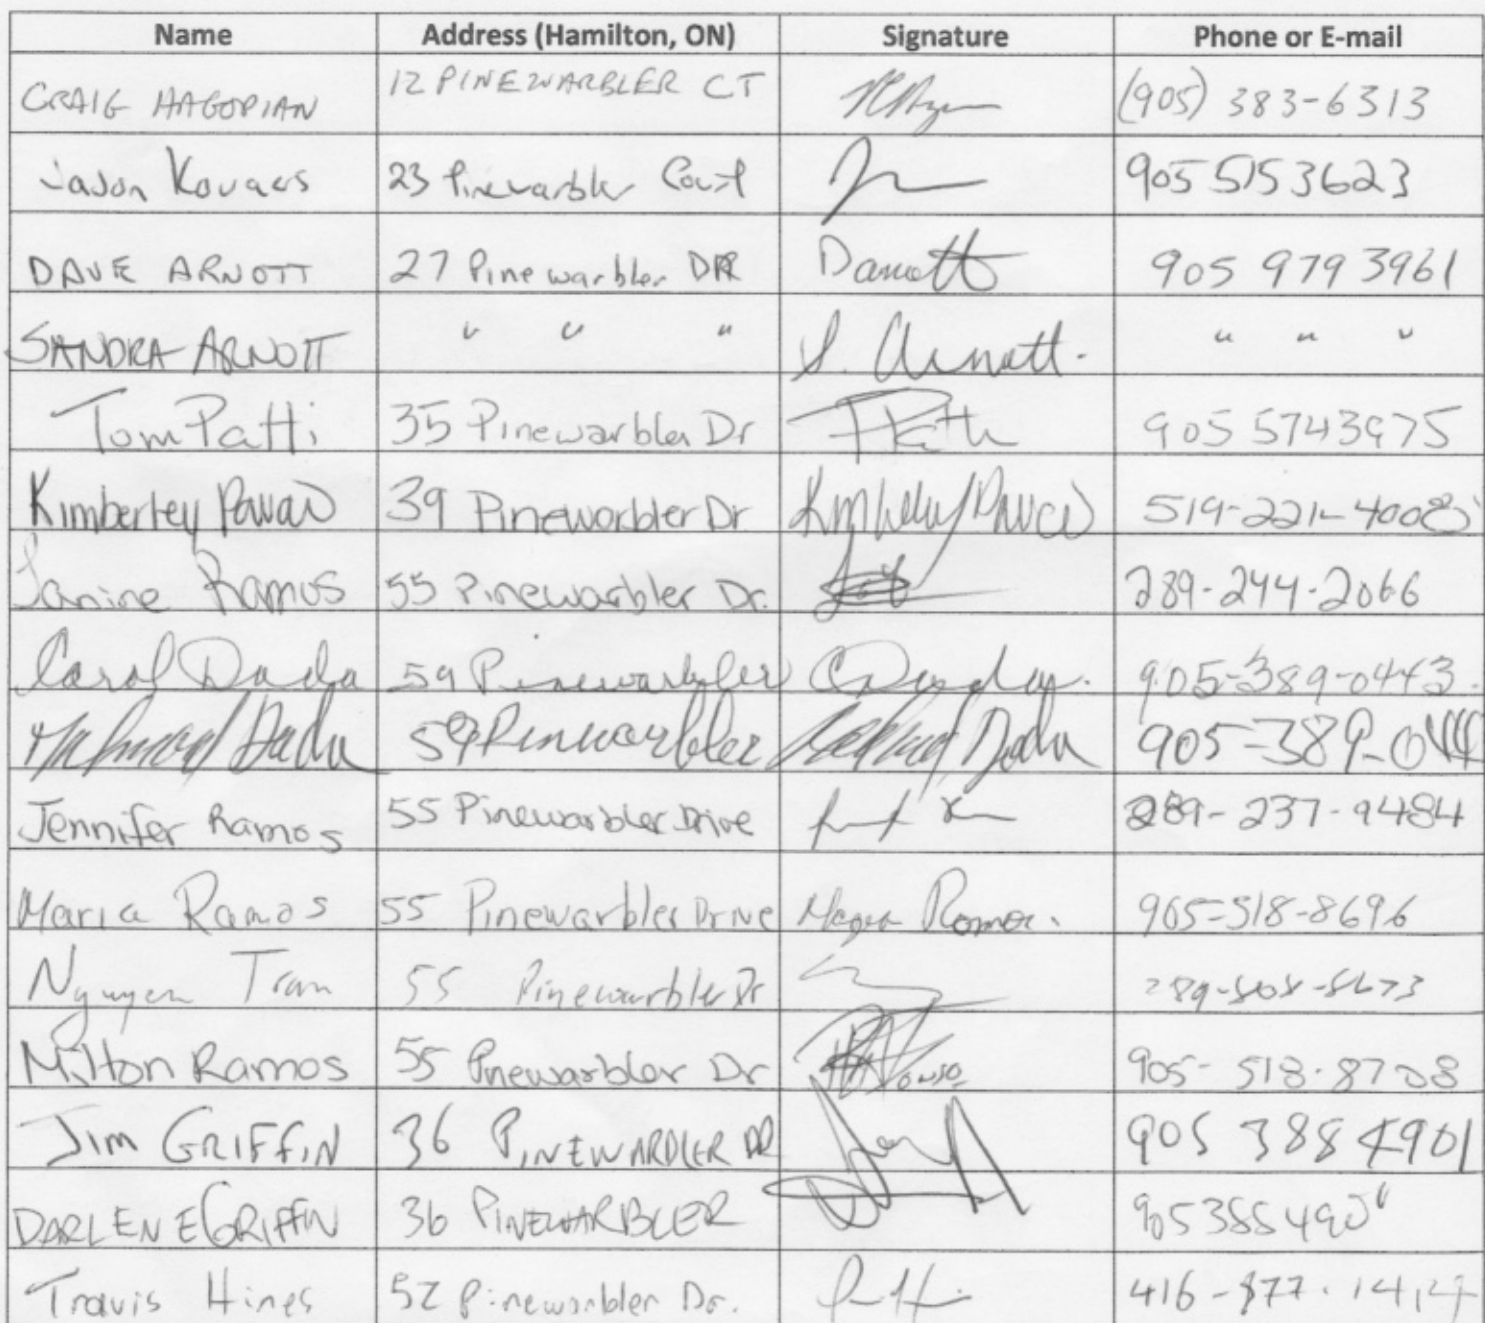 Name Address (Hamilton, ON) Signature Phone or E-mail
CRAIG HAGOPIAN 12 PINEWARBLER CT (905) 383-6313
Jason Kovacs 23 Pinewarbler Court 905 515 3623
DAVE ARNOTT 27 Pinewarbler DR 905 979 3961
SANDRA ARNOTT " " " S. Arnott. " " "
Tom Patti 35 Pinewarbler Dr 905 5743975
Kimberley 39 Pinewarbler Dr Kimberley
Janine Ramos 55 Pinewarbler Dr. 289-244-2066
Carol Dadu 59 Pinewarbler 905-389-0443.
59 Pinewarbler
Jennifer Ramos 55 Pinewarbler Drive 289-237-9484
Maria Ramos 55 Pinewarbler Drive 905-518-8696
Nguyen Tran 55 Pinewarbler Dr
Milton Ramos 55 Pinewarbler Dr 905-518-8708
Jim GRIFFIN 36 PINEWARBLER DR 905 388 4901
DARLENE GRIFFIN 36 PINEWARBLER
Travis Hines 52 Pinewarbler Dr.